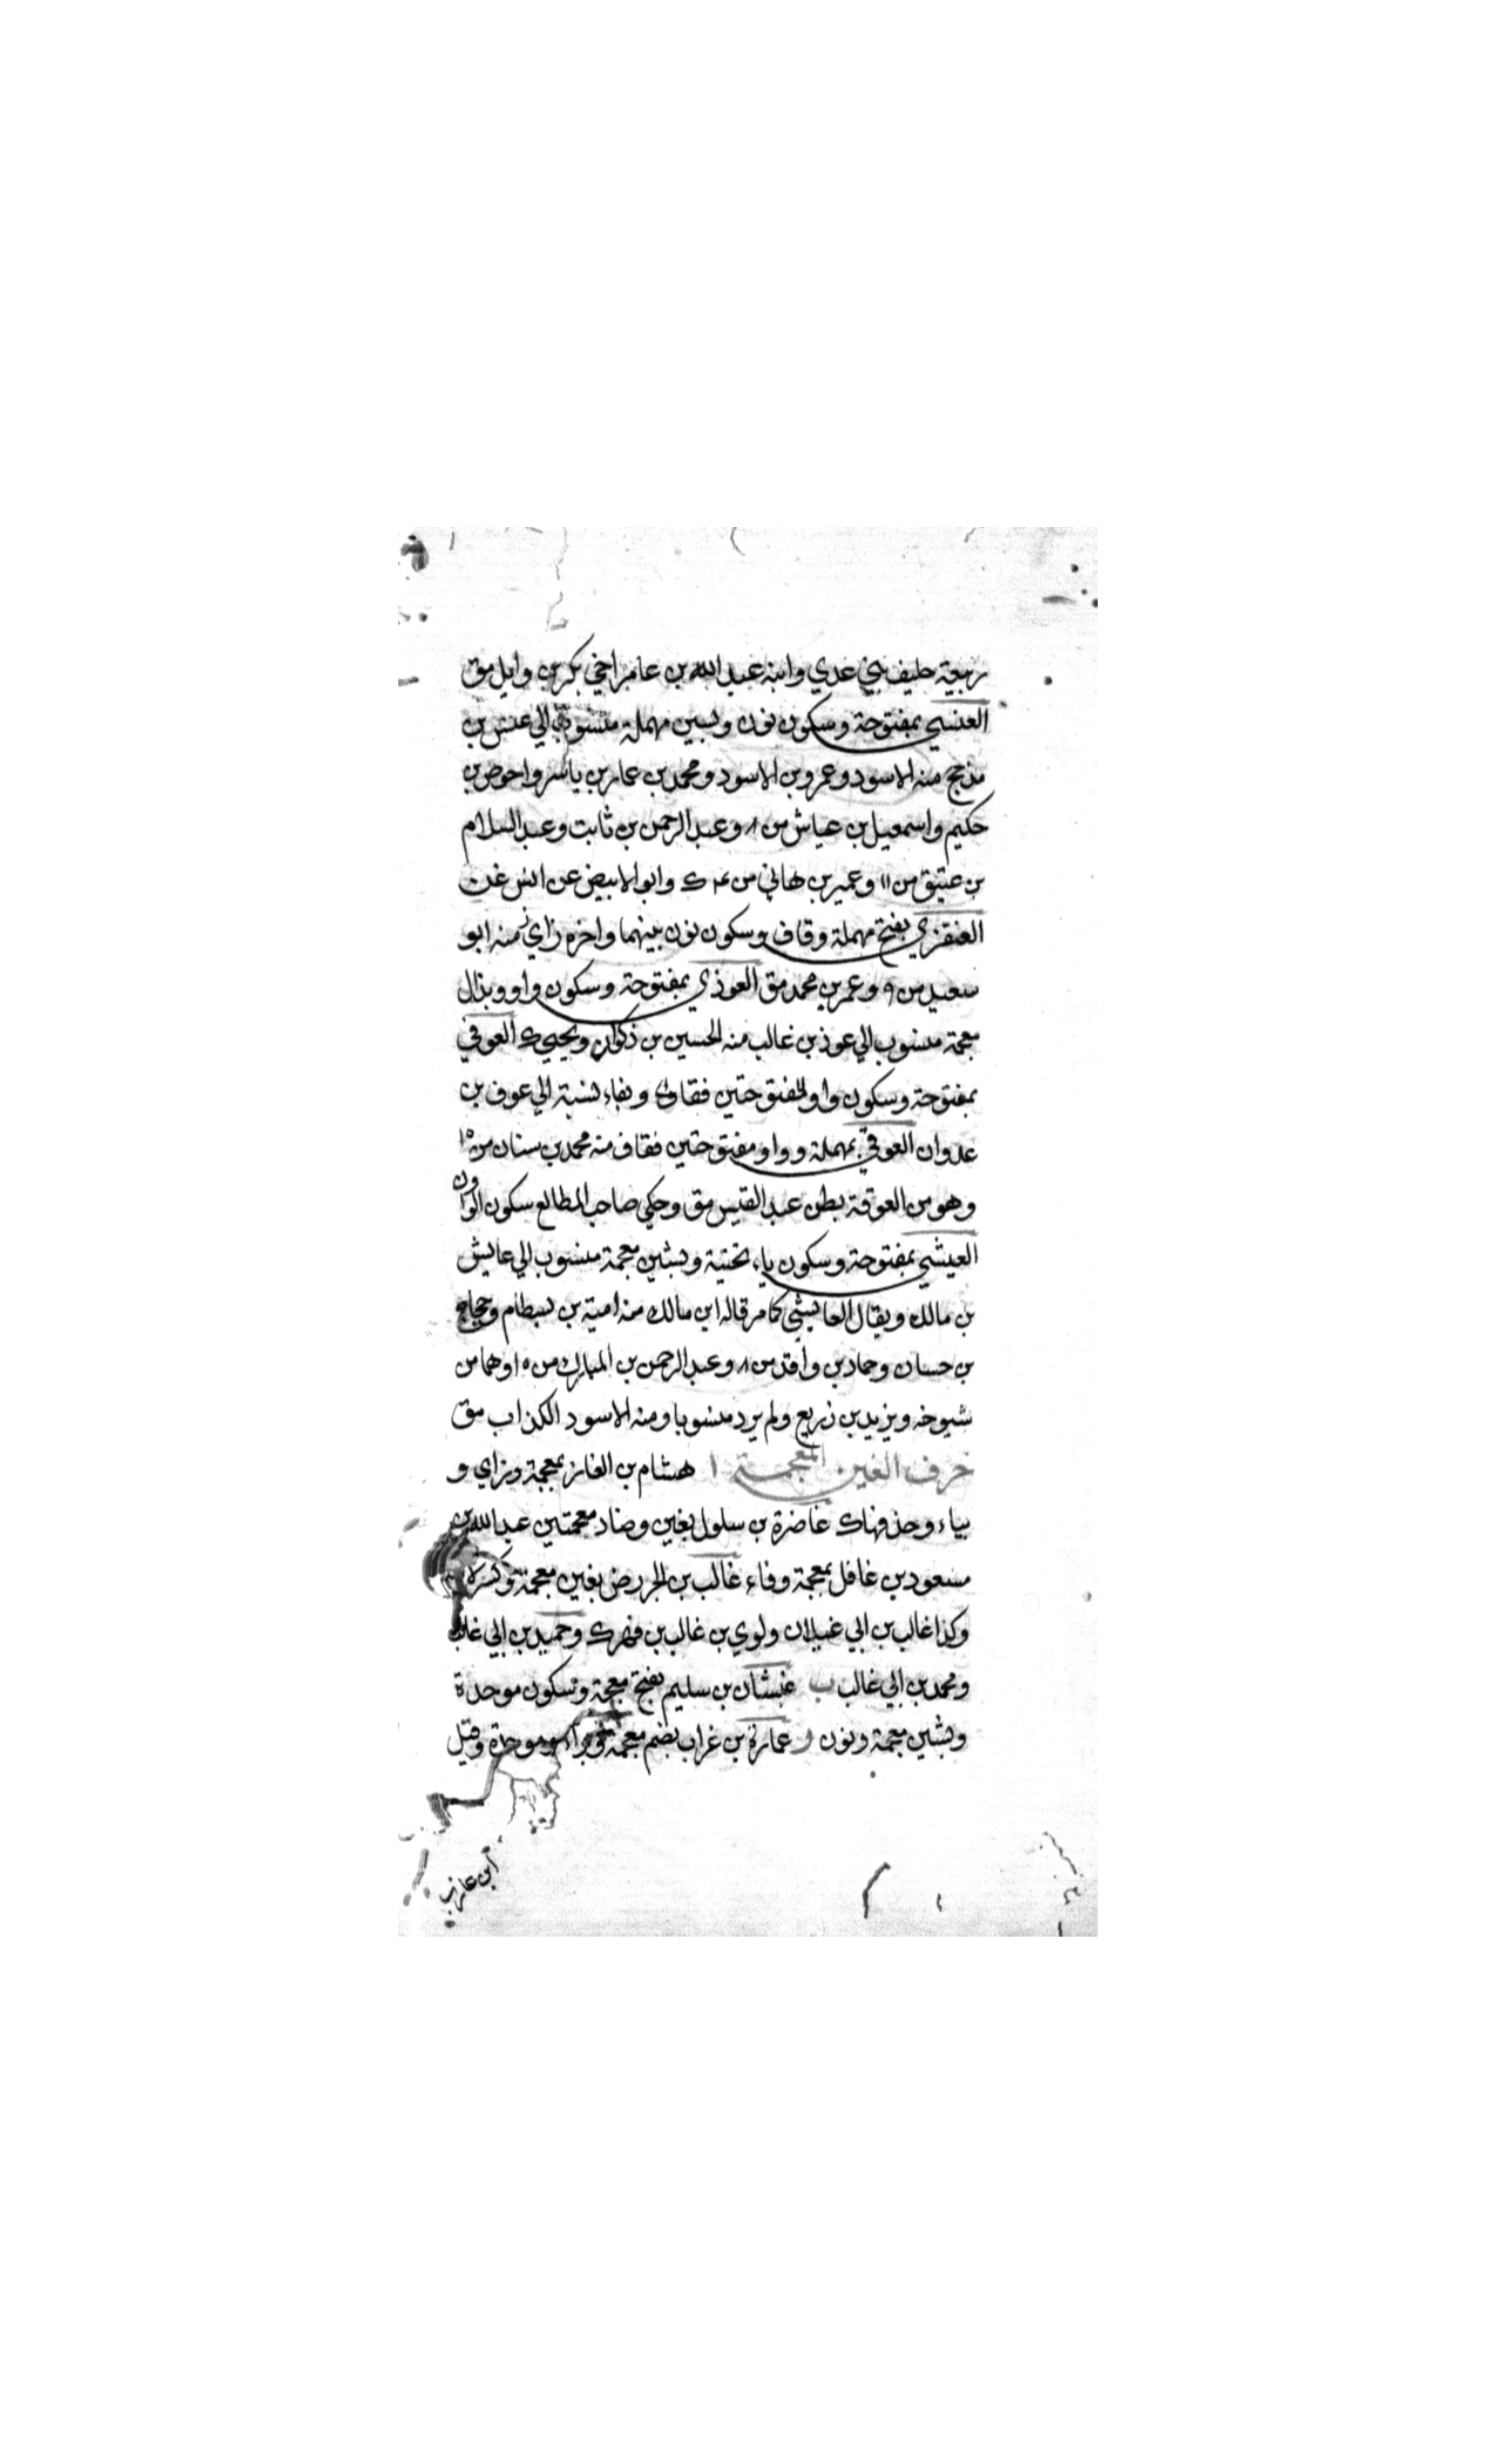 ربيعة حليف بني عدي وابنه عبد الله بن عامر اخي بكر بن وايل مق
العنسي بمفتوحة وسكون نون وبسين مهملة منسوب الي عنس بن
مذحج منه الاسود وعمرو بن الاسود ومحمد بن عمار بن ياسر واحوص بن
حكيم واسمعيل بن عياش من ٨ وعبد الرحمن بن ثابت وعبد السلام
بن عتيق من ١١ وعمير بن هاني من ٤ ك وابو الابيض عن انس غن
العنقزي بفتح مهملة وقاف وسكون نون بينهما واخره زاي منه ابو
سعيد من ٩ وعمر بن محمد مق العوذي بمفتوحة وسكون واو وبذال
معجمة منسوب الي عوذ بن غالب منه الحسين بن ذكوان ويحيي ك العوفي
بمفتوحة وسكون واو وبفاء نسبة الي عوف بن
عدوان العوقي بمهملة وواو مفتوحتين فقاف منه محمد بن سنان من ١٠
وهو من العوقة بطن عبد القيس مق وحكي صاحب المطالع سكون الواو ن
العيشي بمفتوحة وسكون ياء تحتية وبشين معجمة منسوب الي عايش
بن مالك ويقال العايشي كما مر قاله ابن مالك منه امية بن بسطام وحجاج
بن حسان وحماد بن واقد من ٨ وعبد الرحمن بن المبارك من ١٠ وهما من
شيوخه ويزيد بن زريع ولم يرد منسوبا ومنه الاسود الكذاب مق
حرف الغين المعجمة ا هشام بن الغاز بمعجمة وزاي و
بياء وحذفها ك غاضرة بن سلول بغين وضاد معجمتين عبد الله بن
مسعود بن غافل بمعجمة وفاء غالب بن الجر رض بغين معجمة وكسر لام
وكذا غالب بن ابي غيلان ولوي بن غالب بن فهر ك وحميد بن ابي غالب
ومحمد بن ابي غالب ب غبشان بن سليم بفتح معجمة وسكون موحدة
وبشين معجمة ونون ر عمارة بن غراب بضم معجمة وبراء وموحدة وقيل
ابن عازب